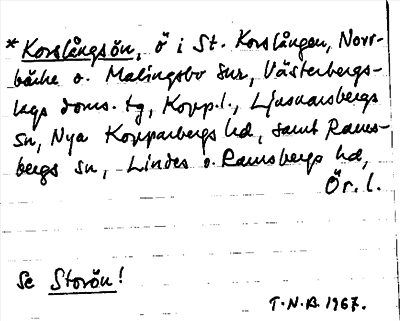 * Korslångsön, ö i St. Korslången, Norr-
bärke o. Malingsbo snr, Västerbergs-
lags doms. tg, Kopp.l., Ljusnarsbergs
sn, Nya Kopparbergs hd, samt Rams-
bergs sn, Lindes o. Ramsbergs hd,
Ör. l.
Se Storön!
T.N.B. 1967.